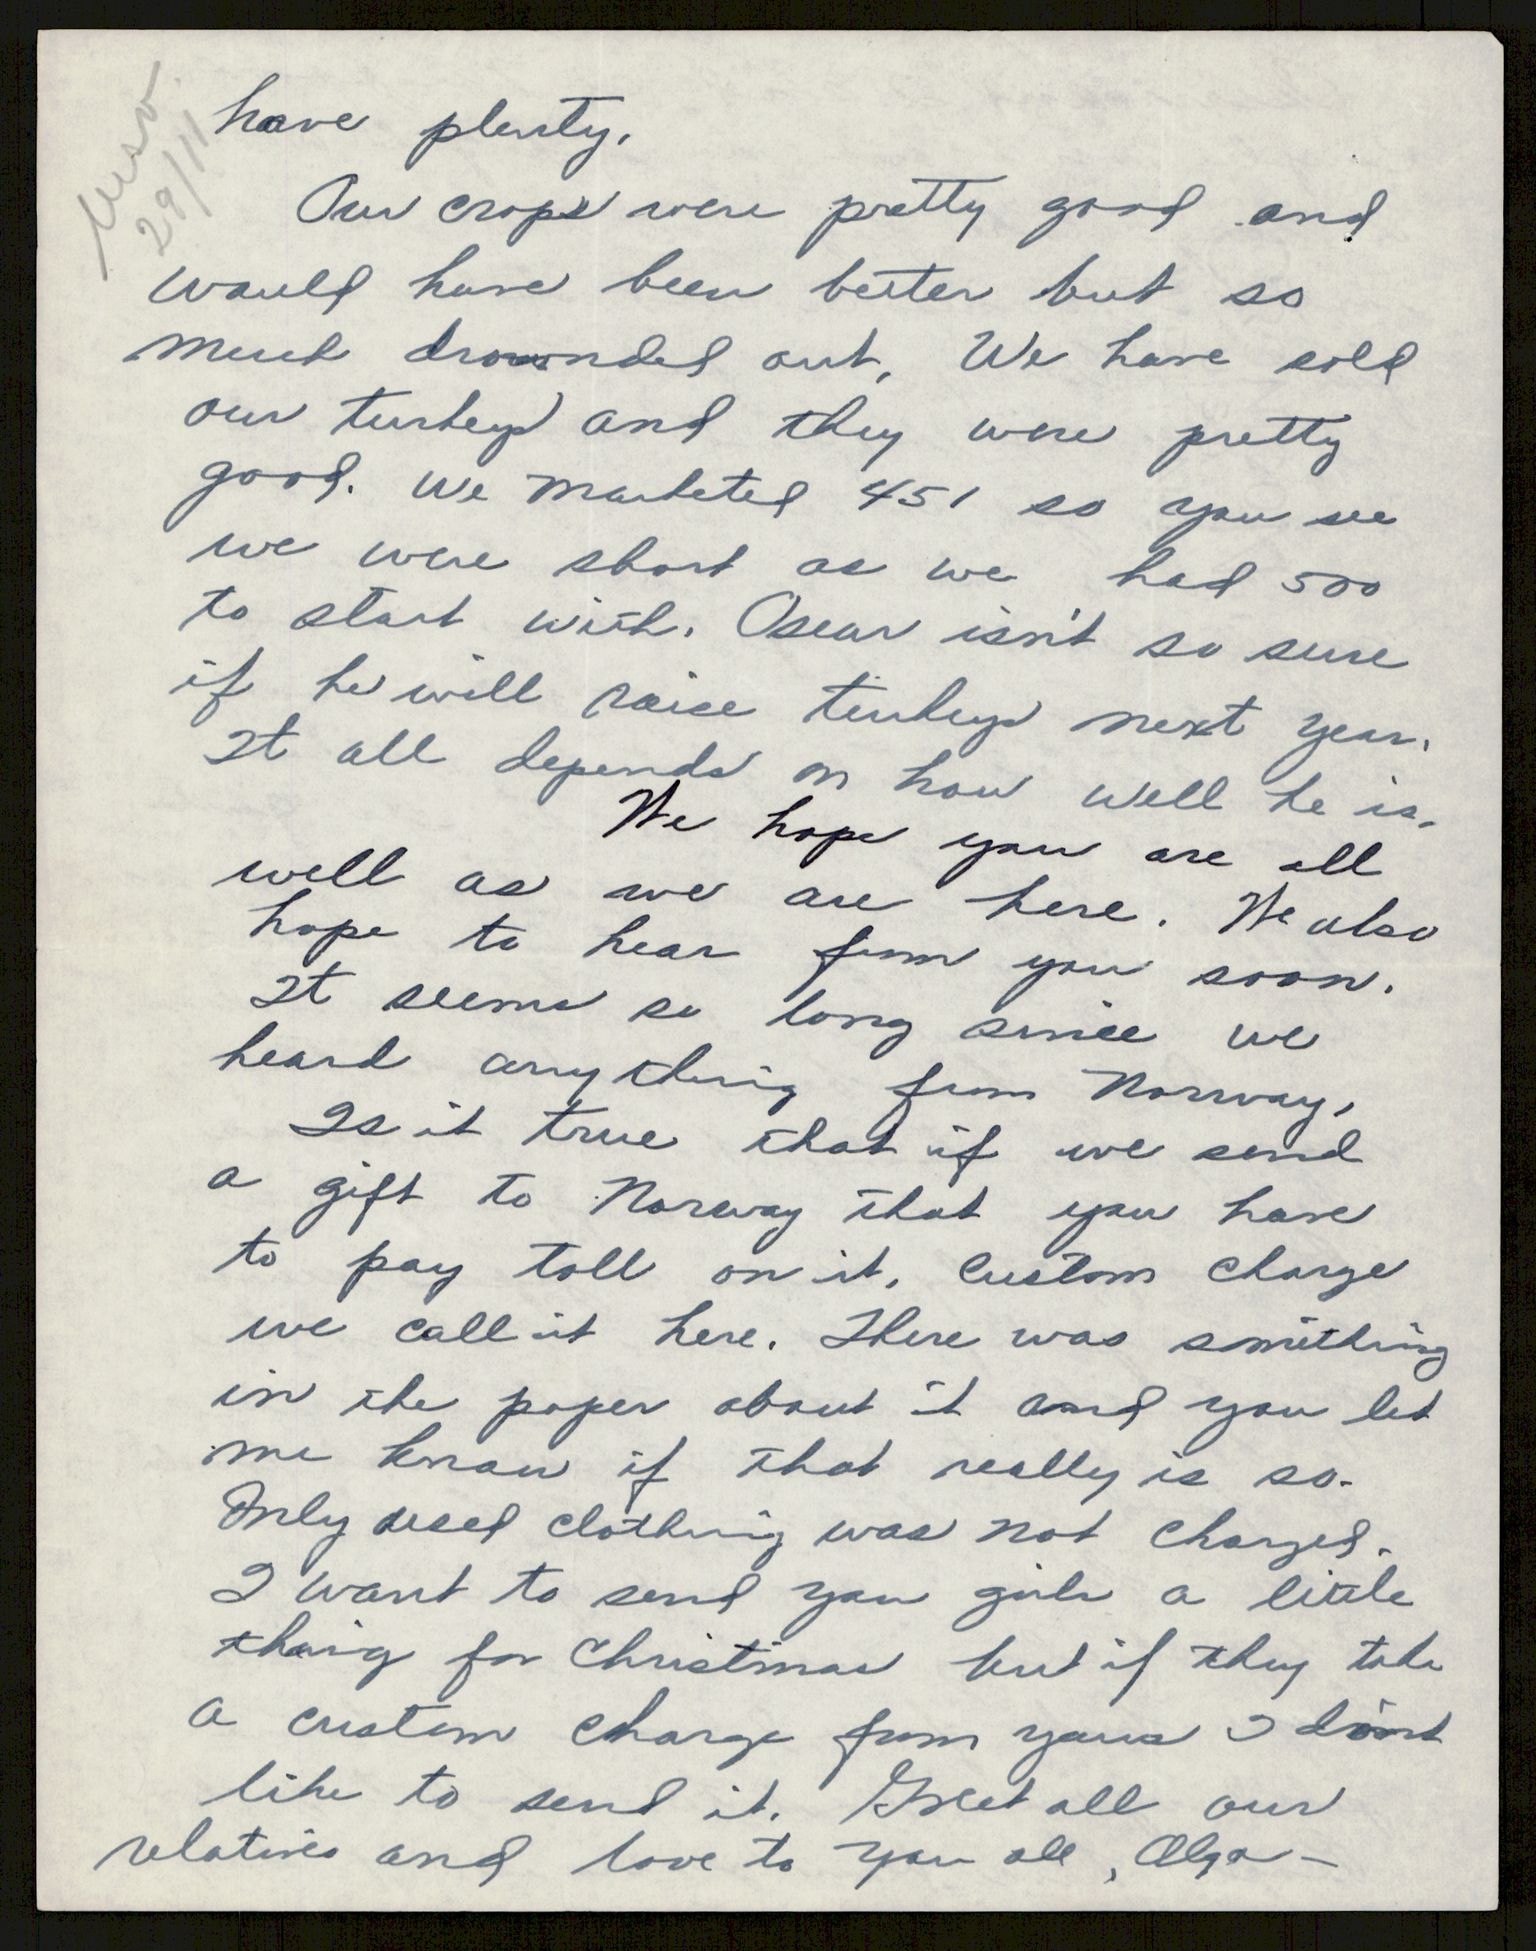 29/11
have plenty.
Our crops were pretty good and
would have been better but so
much drownded out, We have sold
our turkeys and they were pretty
good. We marketed 451 so you see
we were short as we had 500
to start with. Oscar isn't so sure
if he will raise turkeys next year.
It all depends on how well he is.
We hope you are all
well as we are here. We also
hope to hear from you soon.
It seems so long since we
heard anything from Norway,
Is it true that if we send
a gift to Norway that you have
to pay toll on it, Custom charge
we call it here. There was something
in the paper about it and you let
me know if that really is so.
Only used clothing was not charged.
I want to send you girls a little
thing for Christmas but if they take
a custom charge from yours I don't
like to send it. Greet all our
relatives and love to you all, Olga -